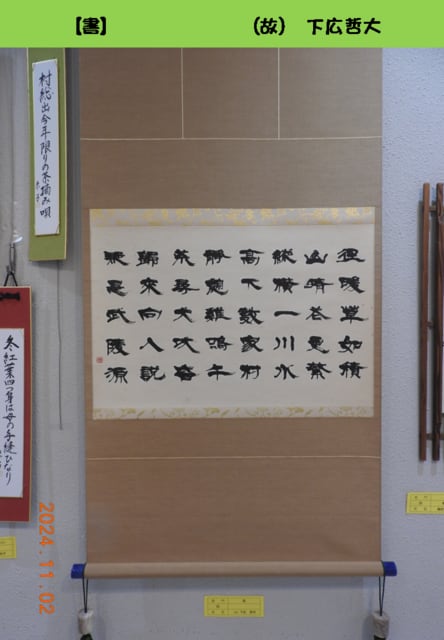 【書】 (故) 下広哲大
村総出今年限りの茶摘み唄
徑暖草如積
山晴花更繁
縱横一川水
高下數家村
静憩雞鳴午
荒尋犬吠昏
歸來向人説
疑是武陵源
冬紅葉四つ身は母の手縫ひなり
2024.11.02